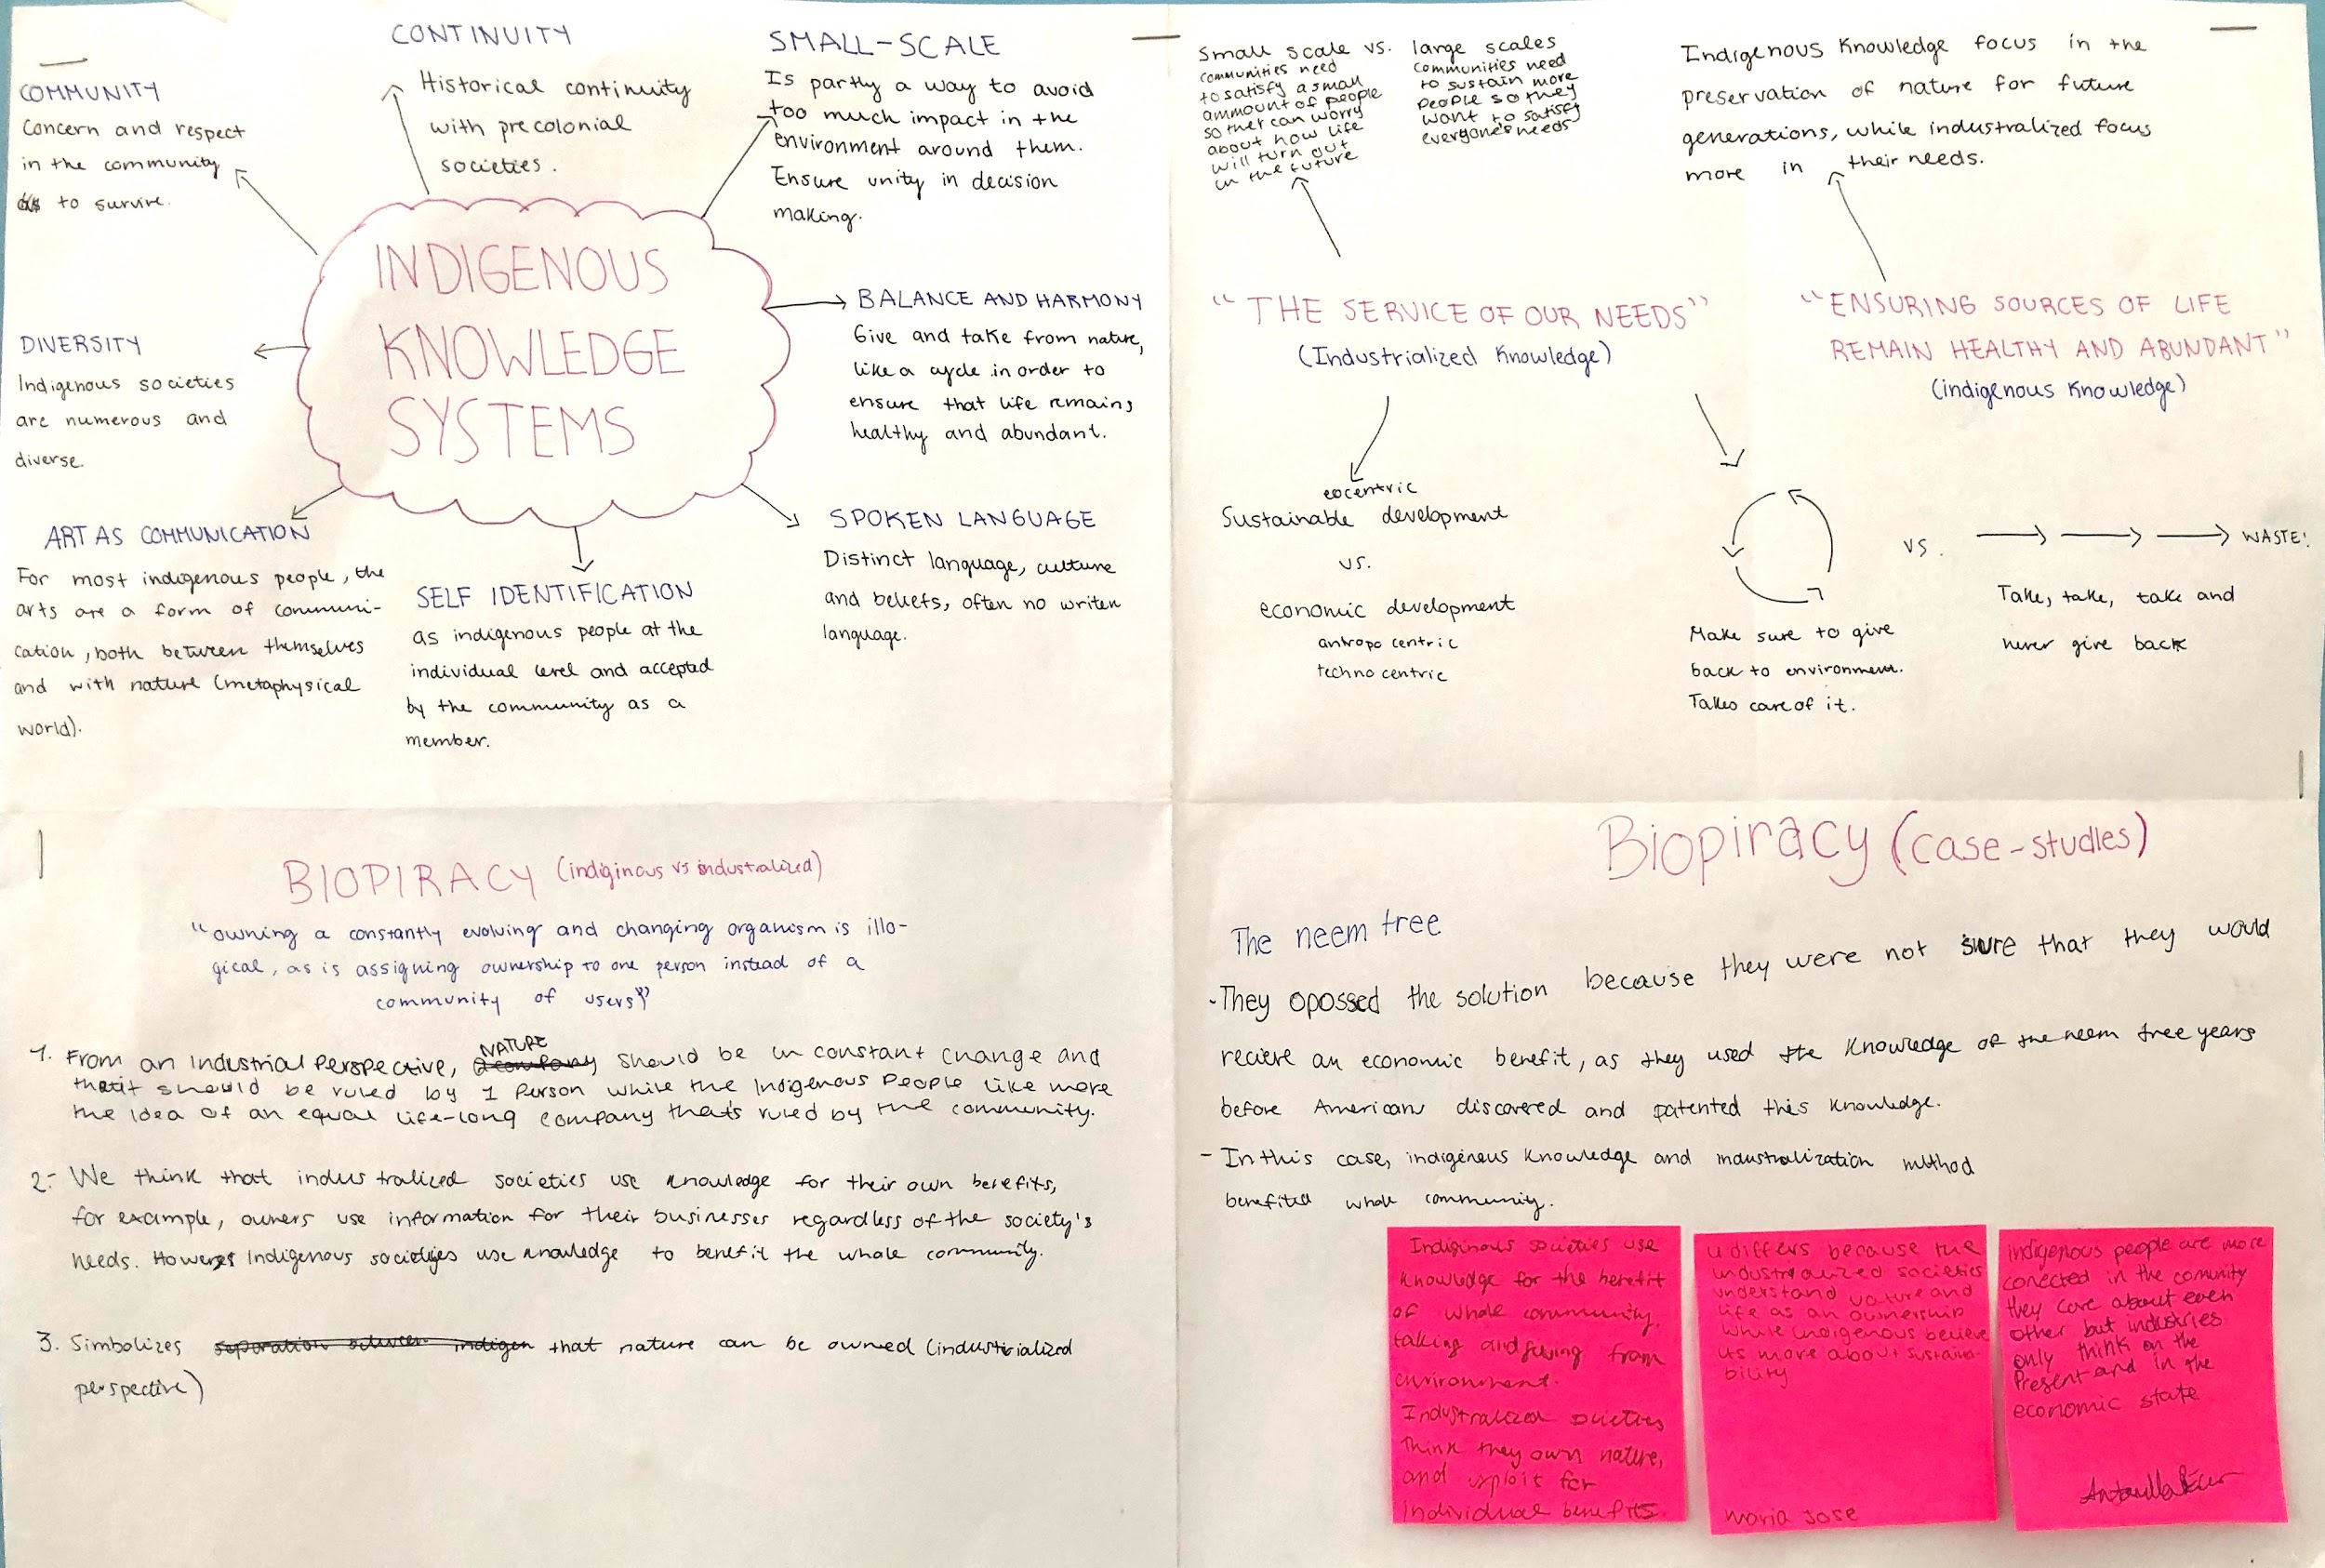 CONTINUITY
Historical continuity
with precolonial
societies.
SMALL-SCALE
Is partly a way to avoid
too much impact in the
environment around them.
Ensure unity in decision
making.
COMMUNITY
Concern and respect
in the community
to survive.
INDIGENOUS
KNOWLEDGE
SYSTEMS
BALANCE AND HARMONY
Give and take from nature,
like a cycle in order to
ensure that life remains
healthy and abundant.
DIVERSITY
Indigenous societies
are numerous and
diverse.
ART AS COMMUNICATION
For most indigenous people, the
arts are a form of communi-
cation, both between themselves
and with nature (metaphysical
world).
SELF IDENTIFICATION
as indigenous people at the
individual level and accepted
by the community as a
member.
SPOKEN LANGUAGE
Distinct language, culture
and beliefs, often no writen
language.
Small scale vs.
communities need
to satisfy a small
ammount of people
so they can worry
about how life
will turn out
in the future
large scales
communities need
to sustain more
people so they
want to satisfy
everyone's needs
Indigenous Knowledge focus in the
preservation of nature for future
generations, while industralized focus
more in their needs.
"THE SERVICE OF OUR NEEDS"
(Industrialized Knowledge)
"ENSURING SOURCES OF LIFE
REMAIN HEALTHY AND ABUNDANT"
(indigenous Knowledge)
eocentric
Sustainable development
vs.
economic development
antropo centric
techno centric
Make sure to give
back to environment.
Takes care of it.
vs.
WASTE!
Take, take, take and
never give back
BIOPIRACY (indiginous vs industralized)
"owning a constantly evolving and changing organism is illo-
gical, as is assigning ownership to one person instead of a
community of users"
1. From an Industrial Perspective, NATURE should be in constant change and
that it should be ruled by 1 Person while the Indigenous People like more
the idea of an equal life-long company that's ruled by the community.
2.- We think that industralized societies use knowledge for their own benefits,
for example, owners use information for their businesses regardless of the society's
needs. However Indigenous societies use knowledge to benefit the whole community.
3. Simbolizes that nature can be owned (industrialized
perspective)
Biopiracy (case-studies)
The neem tree
-They opossed the solution because they were not sure that they would
recieve an economic benefit, as they used the knowledge of the neem tree years
before Americans discovered and patented this knowledge.
- In this case, indigenous knowledge and industralization method
benefited whole community.
Indiginous societies use
knowledge for the benefit
of whole community,
taking and giving from
environment.
Industralized societies
think they own nature,
and exploit for
individual benefits.
differs because the
industrialized societies
understand nature and
life as an ownership
while indigenous believe
its more about sustaina-
bility
Maria Jose
indigenous people are more
conected in the comunity
they care about even
other but industries
only think on the
Present and in the
economic state